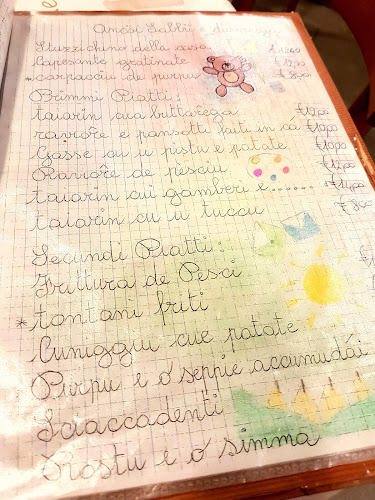 Stuzzichino della casa € 12,00
Capesante gratinate € 12,00
* carpaccio de purpu € 8,00
Primmi Piatti:
taiarin cua buttarega € 12,00
raviöre e pansotti faiti in cá € 10,00
Gasse cu u pistu e patate € 10,00
Raviöre de pesciu € 12,00
taiarin cui gamberi e......
taiarin cu u tuccu € 8,00
Secundi Piatti:
Frittura de Pesci
* tontani friti
Cuniggiu cue patate
Purpu e o seppie accumudái
Sciaccadenti
Rostu e o simma